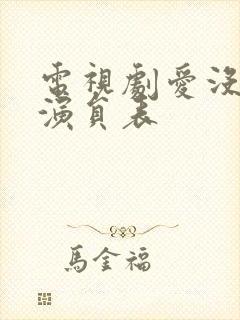 電視劇愛沒
演員表
馬金福